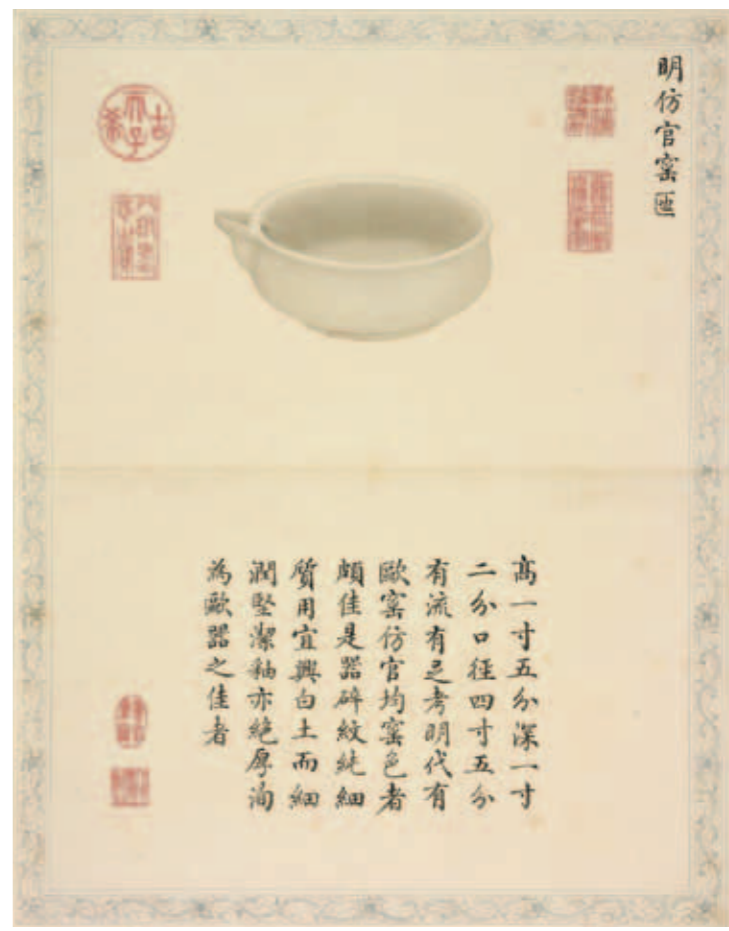 明仿官窯匜
高一寸五分深一寸
二分口徑四寸五分
有流有足考明代有
歐窯仿官均窯色者
頗佳是器碎紋純細
質用宜興白土而細
潤堅潔釉亦絶厚洵
為歐器之佳者
古希天子